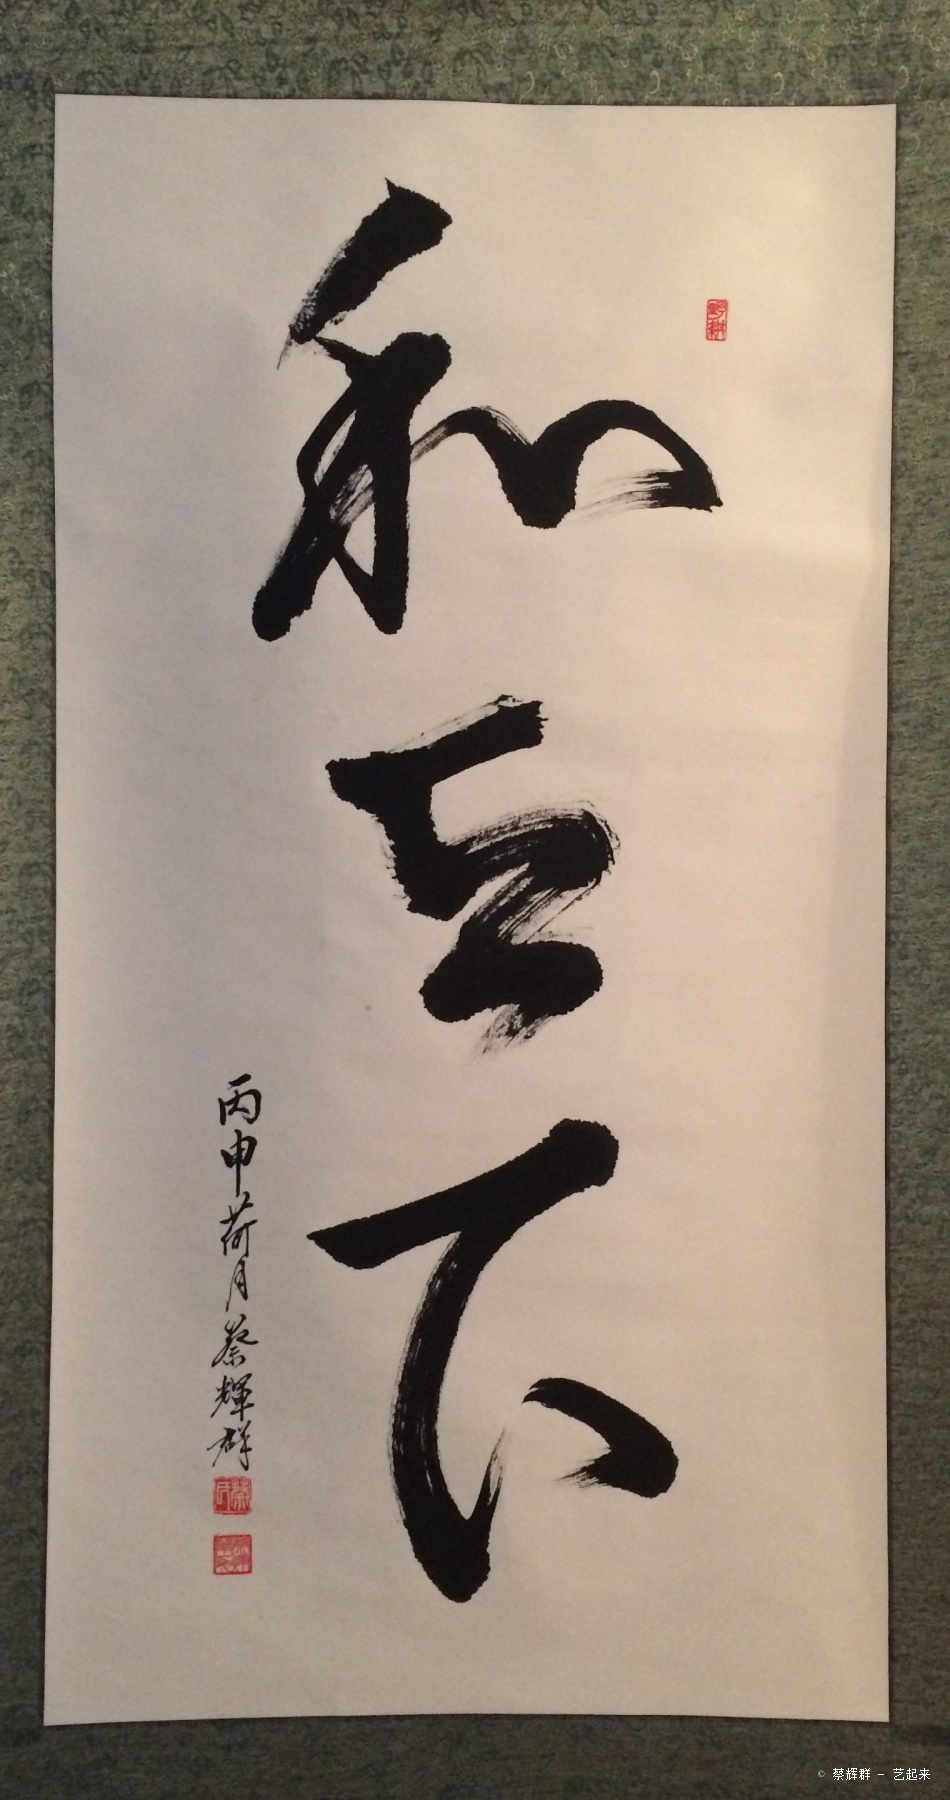 和立下
丙申荷月蔡輝群
© 蔡辉群 - 艺起来